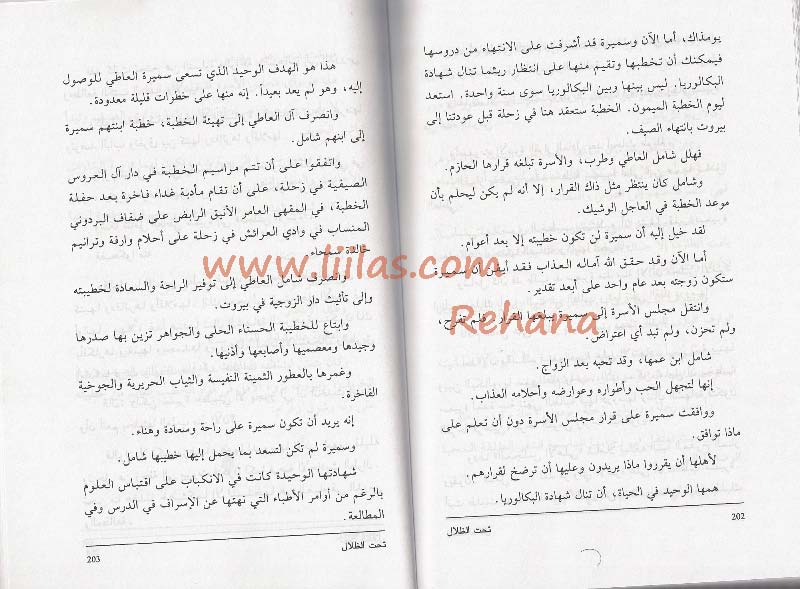 يومذاك، أما الآن وسميرة قد أشرفت على الانتهاء من دروسها
فيمكنك أن تخطبها وتقيم منها على انتظار ريثما تنال شهادة
البكالوريا. ليس بينها وبين البكالوريا سوى سنة واحدة. استعد
ليوم الخطبة الميمون. الخطبة ستعقد هنا في زحلة قبل عودتنا إلى
بيروت بانتهاء الصيف.
فهلل شامل العاطي وطرب، والأسرة تبلغه قرارها الحازم.
وشامل كان ينتظر مثل ذاك القرار، إلا أنه لم يكن ليحلم بأن
موعد الخطبة في العاجل الوشيك.
لقد خيل إليه أن سميرة لن تكون خطيبته إلا بعد أعوام.
أما الآن وقد حقق الله آماله العذاب فقد أيقن أن سميرة
ستكون زوجته بعد عام واحد على أبعد تقدير.
وانتقل مجلس الأسرة إلى سميرة يبلغها القرار، فلم تفرح،
ولم تحزن، ولم تبد أي اعتراض.
شامل ابن عمها، وقد تحبه بعد الزواج.
إنها لتجهل الحب وأطواره وعوارضه وأحلامه العذاب.
ووافقت سميرة على قرار مجلس الأسرة دون أن تعلم على
ماذا توافق.
لأهلها أن يقرروا ماذا يريدون وعليها أن ترضخ لقرارهم.
همها الوحيد في الحياة، أن تنال شهادة البكالوريا.
تحت الظلال
202
هذا هو الهدف الوحيد الذي تسعى سميرة العاطي للوصول
إليه، وهو لم يعد بعيداً. إنه منها على خطوات قليلة معدودة.
وانصرف آل العاطي إلى تهيئة الخطبة، خطبة ابنتهم سميرة
إلى ابنهم شامل.
واتفقوا على أن تتم مراسيم الخطبة في دار آل العروس
الصيفية في زحلة، على أن تقام مأدبة غداء فاخرة بعد حفلة
الخطبة، في المقهى العامر الأنيق الرابض على ضفاف البردوني
المنساب في وادي العرائش في زحلة على أحلام وارفة وترانيم
خالدة سمحاء.
وانصرف شامل العاطي إلى توفير الراحة والسعادة لخطيبته
وإلى تأثيث دار الزوجية في بيروت.
وابتاع للخطيبة الحسناء الحلى والجواهر تزين بها صدرها
وجيدها ومعصميها وأصابعها وأذنيها.
وغمرها بالعطور الثمينة النفيسة والثياب الحريرية والجوخية
الفاخرة.
إنه يريد أن تكون سميرة على راحة وسعادة وهناء.
وسميرة لم تكن لتسعد بما يحمل إليها خطيبها شامل.
شهادتها الوحيدة كانت في الانكباب على اقتباس العلوم
بالرغم من أوامر الأطباء التي نهتها عن الإسراف في الدرس وفي
المطالعة.
تحت الظلال
203
www.liilas.com
Rehana